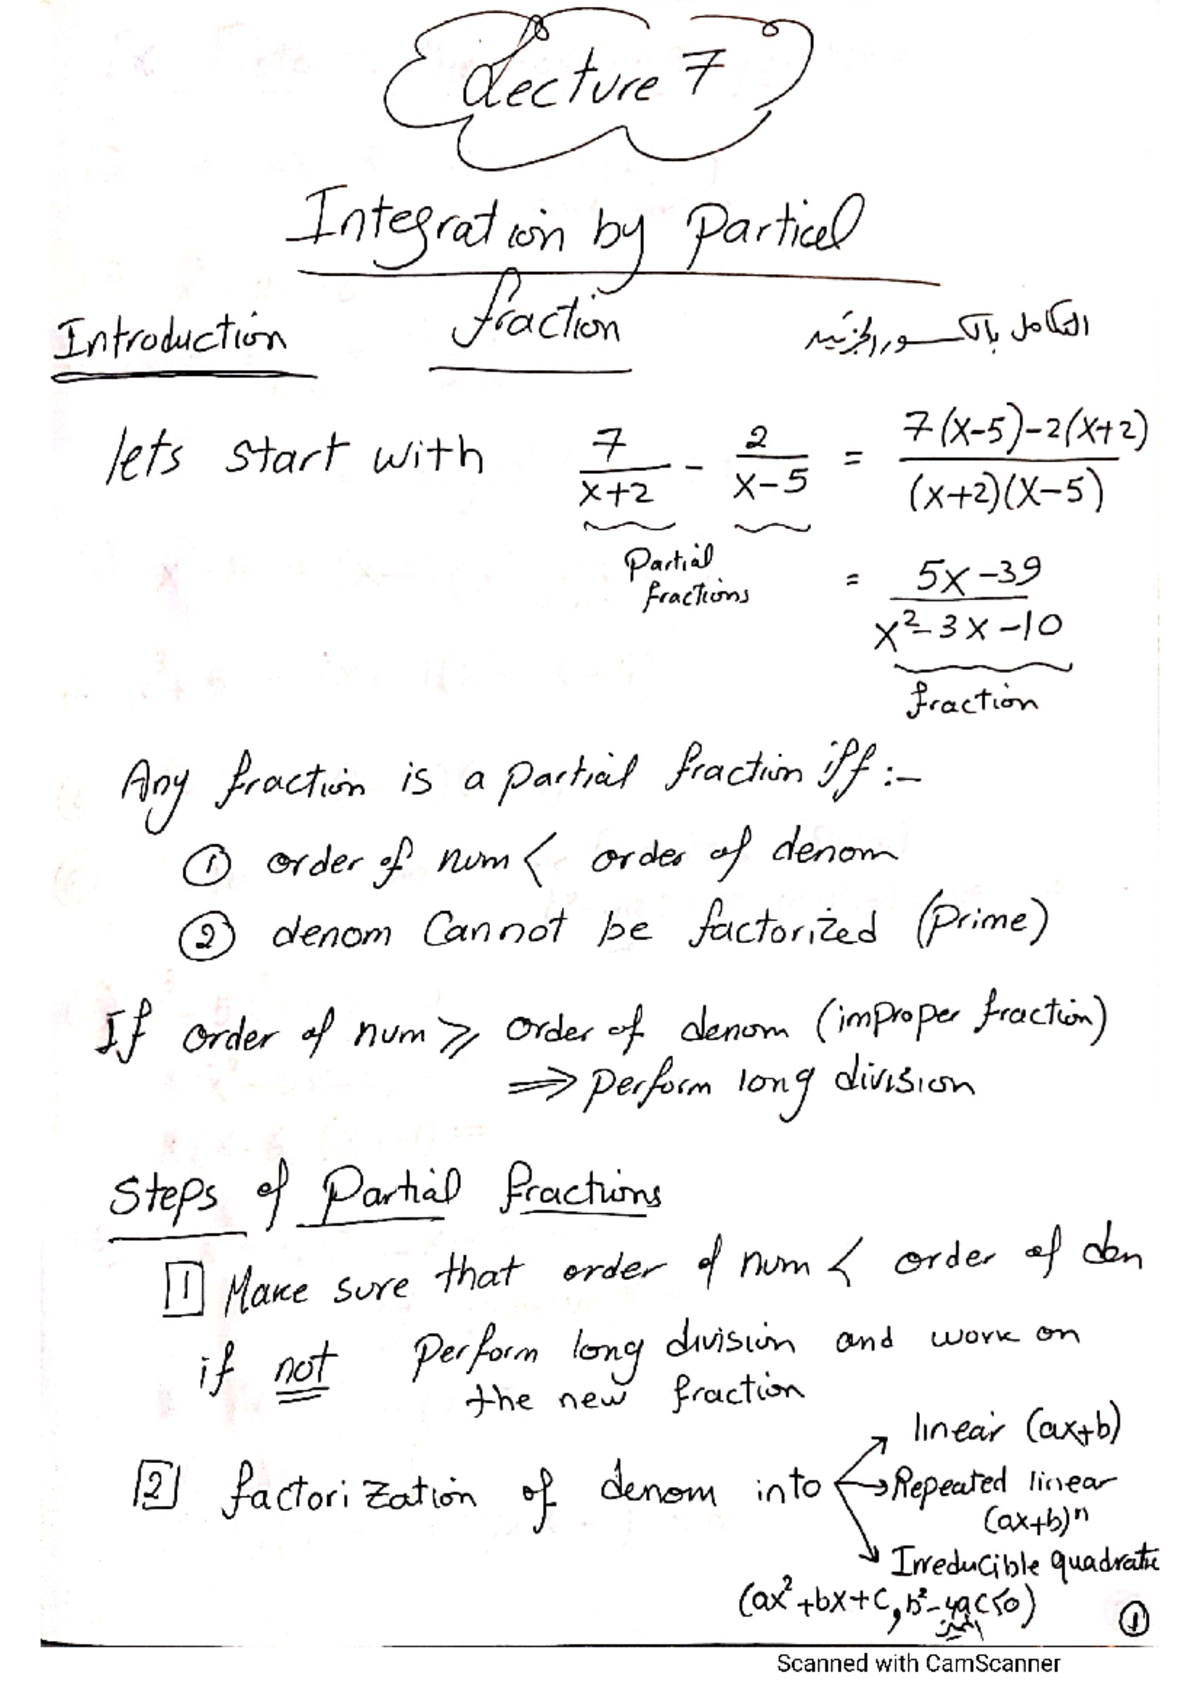 Lecture 7
Integration by Partial
fraction
Introduction
التكامل بالكسور الجزئية
lets start with 7/(x+2) - 2/(x-5) = (7(x-5)-2(x+2))/((x+2)(x-5))
Partial
fractions
= (5x-39)/(x²-3x-10)
fraction
Any fraction is a partial fraction iff :-
① order of num < order of denom
② denom Cannot be factorized (prime)
If order of num ≥ order of denom (improper fraction)
⇒ perform long division
Steps of Partial fractions
1 Make sure that order of num < order of den
if not perform long division and work on
the new fraction
2 factorization of denom into
linear (ax+b)
Repeated linear
(ax+b)ⁿ
Irreducible quadratic
(ax²+bx+c, b²-4ac<0)
المميز
1
Scanned with CamScanner